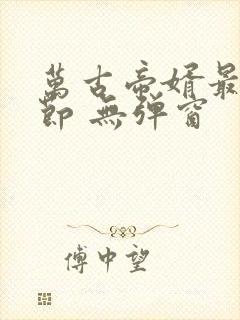 萬古帝婿最
節 無彈窗
傅中望